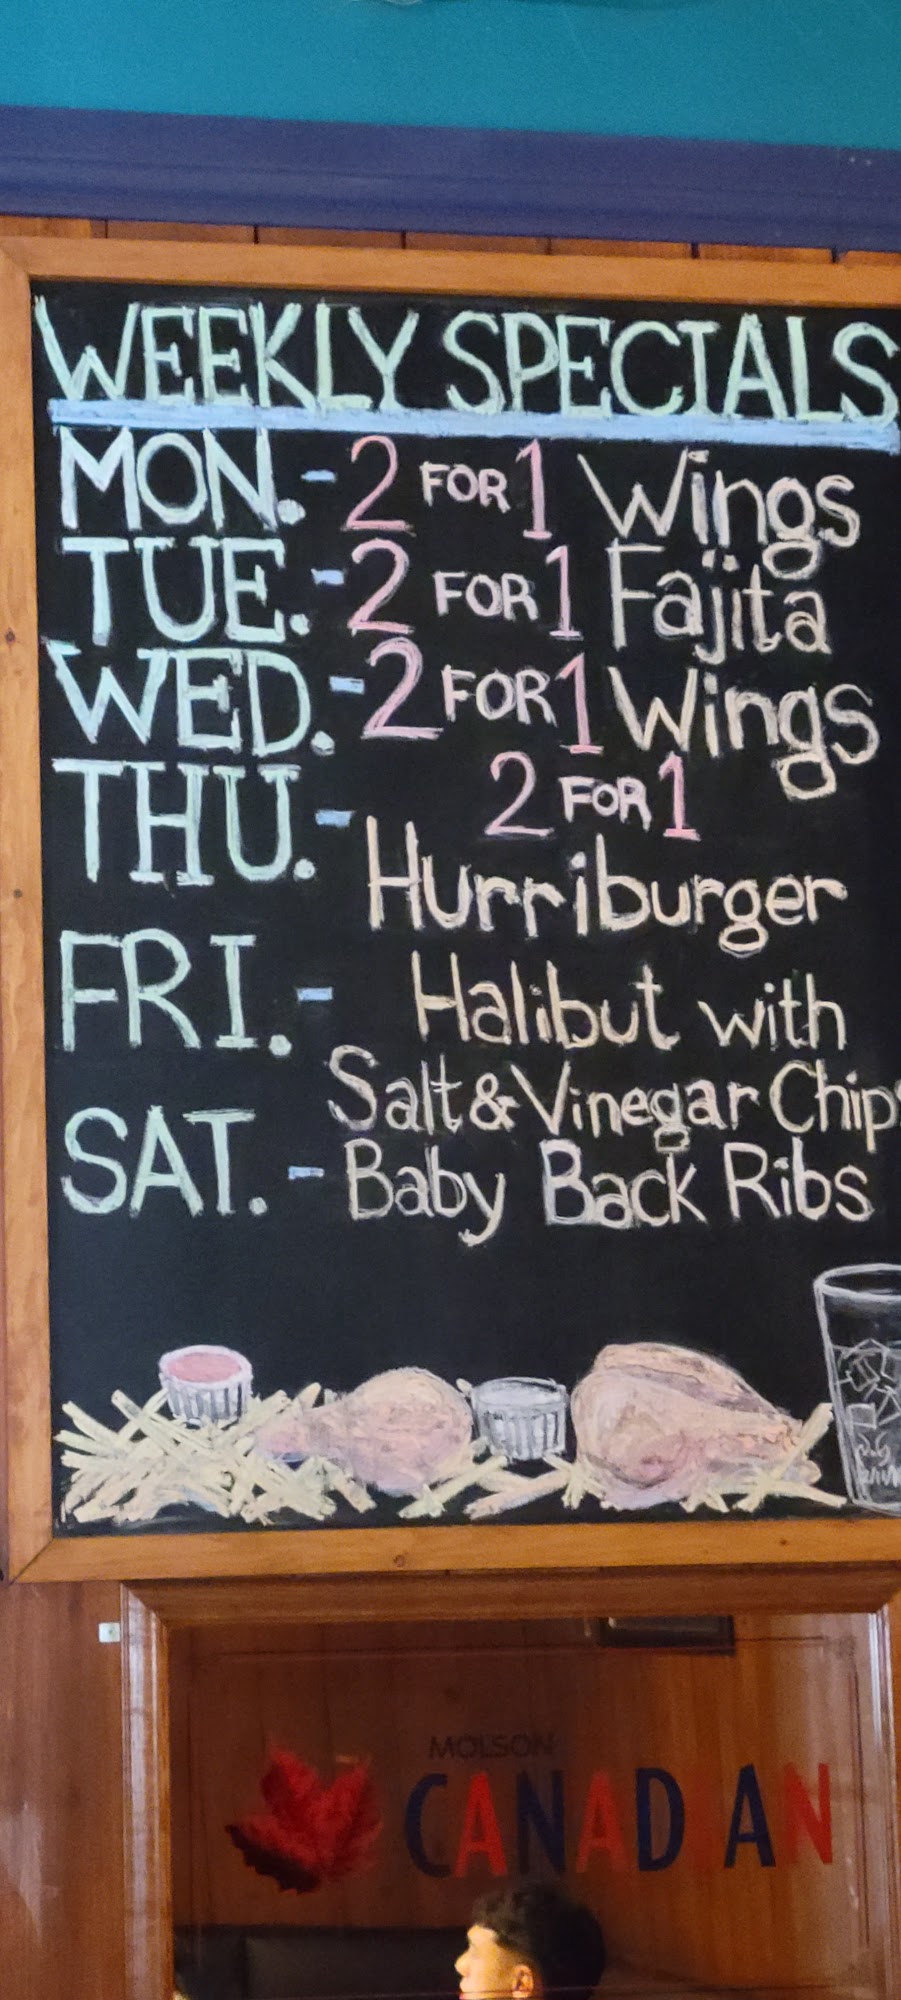 WEEKLY SPECIALS
MON. - 2 FOR 1 Wings
TUE. - 2 FOR 1 Fajita
WED. - 2 FOR 1 Wings
THU. - 2 FOR 1
Hurriburger
FRI. - Halibut with
Salt & Vinegar Chips
SAT. - Baby Back Ribs
MOLSON
CANADIAN